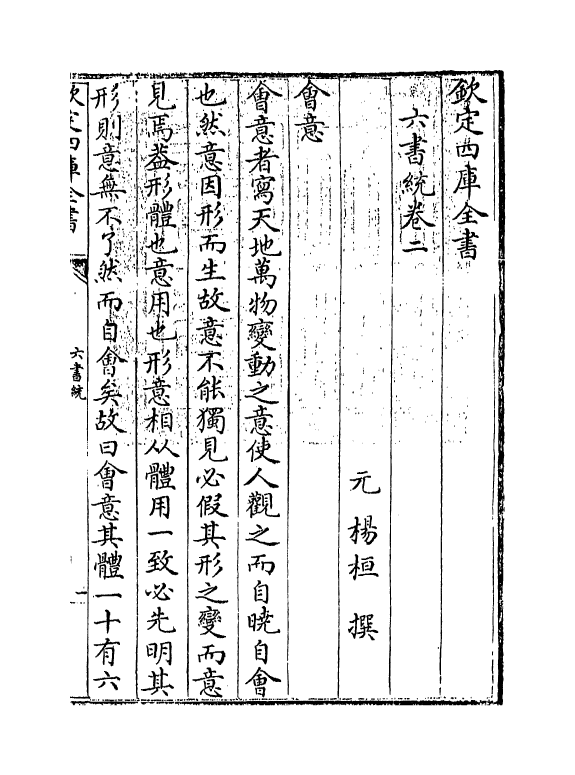 欽定四庫全書
六書統卷二
元 楊桓 撰
會意
會意者寫天地萬物變動之意使人觀之而自曉自會
也然意因形而生故意不能獨見必假其形之變而意
見焉葢形體也意用也形意相从體用一致必先明其
形則意無不了然而自會矣故曰會意其體一十有六
欽定四庫全書
六書統
一